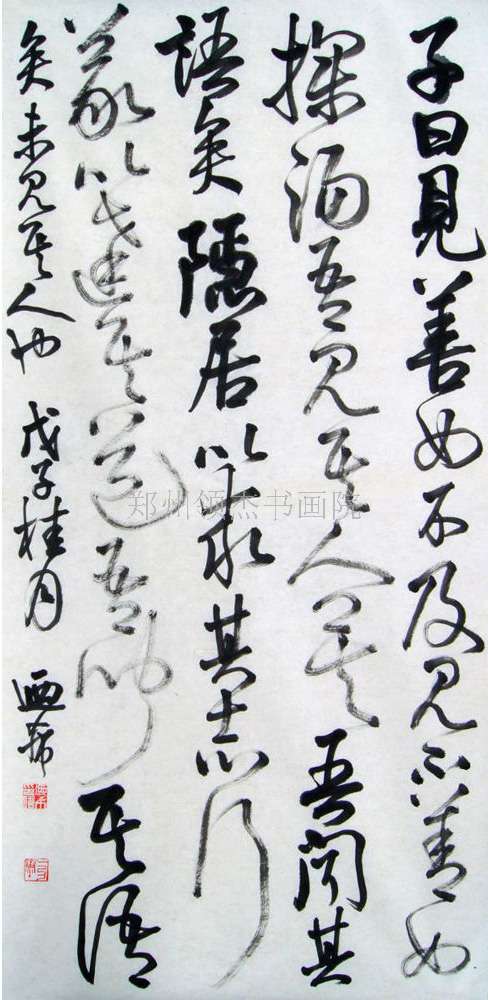 子曰見善如不及見不善如
探湯吾見其人矣吾聞其
語矣隱居以求其志行
義以達其道吾聞其語
矣未見其人也 戊子桂月
郑州领杰书画院